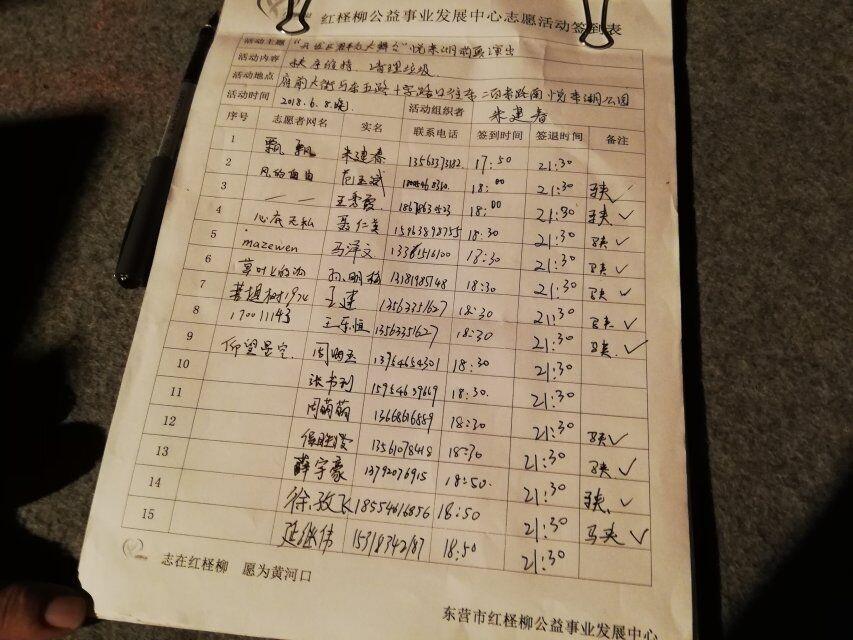 红柽柳公益事业发展中心志愿活动签到表
活动主题 悦来湖 演出
活动内容 秩序维持 清理垃圾
活动地点 府前大街与东五路十字路口往东 路南悦来湖公园
活动时间 2018.6.8.晚 活动组织者 朱建春
序号 志愿者网名 实名 联系电话 签到时间 签退时间 备注
1 飘飘 朱建春 13563373182 17:50 21:30
2 风的自由 范玉斌 18:00 21:30 马夹 ✓
3 一一 王秀霞 18:00 21:30 马夹 ✓
4 心底无私 聂仁美 15963898755 18:30 21:30 马夹 ✓
5 mazewen 马泽文 18:30 21:30 马夹 ✓
6 草叶上的 孙明梅 13181985748 18:30 21:30 马夹 ✓
7 菩提树1974 王建 13563351627 18:30 21:30 马夹 ✓
8 170011143 王乐恒 13563351627 18:30 21:30 马夹 ✓
9 仰望星空 周 13954654301 18:30 21:30
10 张书利 15954639669 18:30. 21:30
11 周萌萌 13668616889 18:30 21:30 马夹 ✓
12 侯胜贤 13561078418 18:30 21:30 马夹 ✓
13 薛宇豪 13792076915 18:50. 21:30 马夹 ✓
14 徐孜飞 18554616856 18:50 21:30 马夹 ✓
15 延继伟 15318342187 18:50 21:30
志在红柽柳 愿为黄河口
东营市红柽柳公益事业发展中心